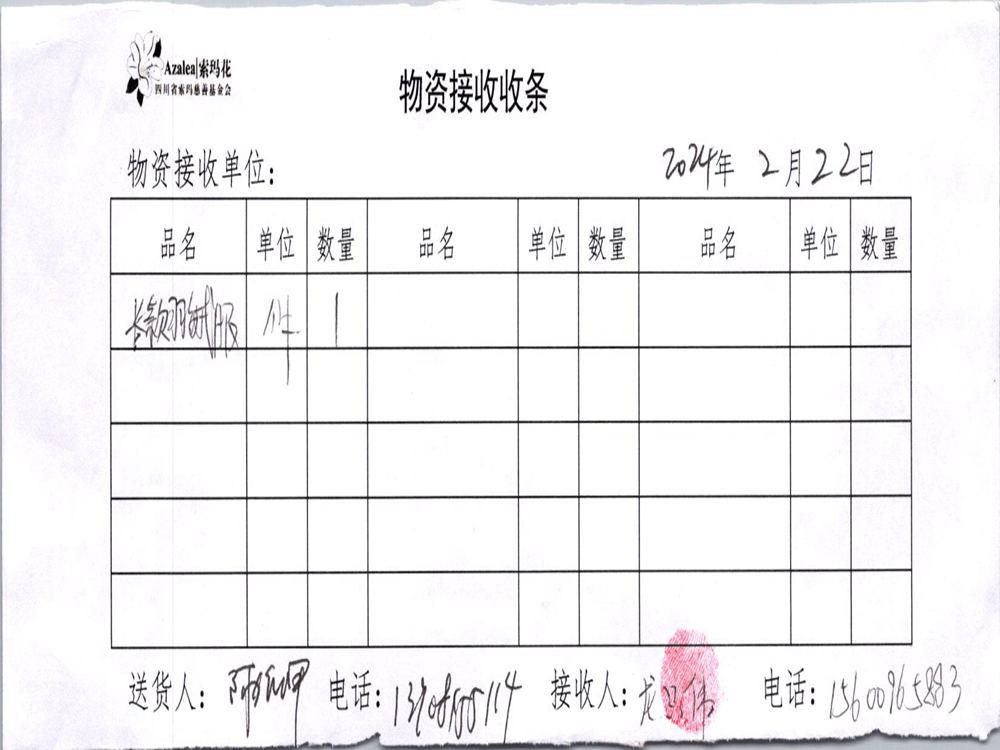 Azalea|索玛花
四川省索玛慈善基金会
物资接收收条
物资接收单位: 2024年2月22日
品名 单位 数量 品名 单位 数量 品名 单位 数量
长款羽绒服 件 1
送货人: 电话: 接收人: 龙 伟 电话: 15600965883